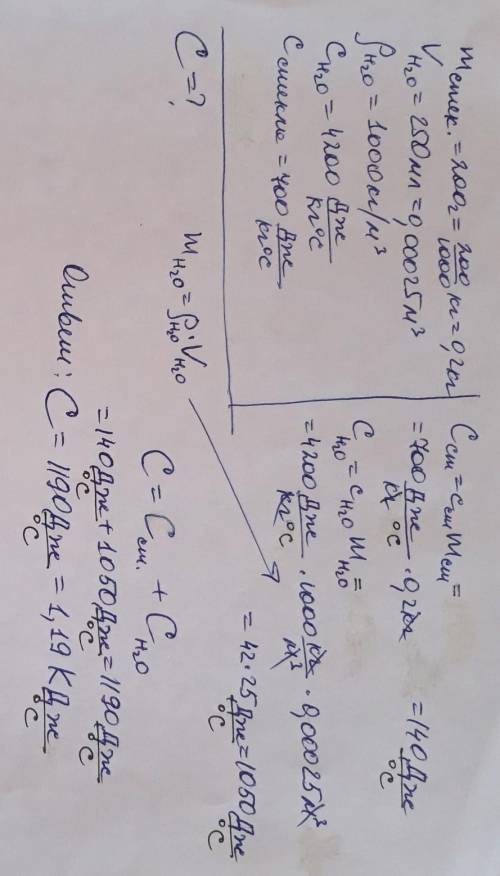 mстек. = 200г = 200/1000 кг = 0,2кг
V H₂O = 250мл = 0,00025м³
ρ H₂O = 1000кг/м³
C H₂O = 4200 Дж/кг°С
C стекло = 700 Дж/кг°С
C = ?
m H₂O = ρ H₂O · V H₂O
C ст = c ст m ст =
= 700 Дж/кг °С · 0,2кг = 140 Дж/°С
C H₂O = c H₂O m H₂O =
= 4200 Дж/кг°С · 1000 кг/м³ · 0,00025м³
= 42 · 25 Дж/°С = 1050 Дж/°С
C = C ст. + C H₂O
= 140 Дж/°С + 1050 Дж/°С = 1190 Дж/°С
Ответ: C = 1190 Дж/°С = 1,19 КДж/°С